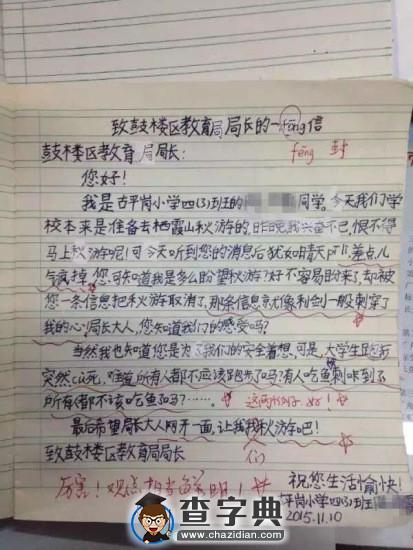 致鼓楼区教育局局长的一fēng信
fēng 封
鼓楼区教育局局长:
您好!
我是古平岗小学四(3)班的 同学。今天我们学
校本来是准备去栖霞山秋游的,昨晚我兴奋不已,恨不得
马上秋游呢!可今天听到您的消息后犹如晴天pī lì,差点儿
气疯掉。您可知道我是多么盼望秋游?好不容易盼来了,却被
您一条信息把秋游取消了,那条信息就像利剑一般刺穿了
我的心!局长大人,您知道我们的感受吗?
当然我也知道您是为了我们的安全着想,可是,大学生跑步
突然cù死,难道所有人都不应该跑步了吗?有人吃鱼刺卡到了
所有人都不该吃鱼了吗?……。 这两个例子好!
最后希望局长大人网开一面,让我们秋游吧!
们
致鼓楼区教育局局长
祝您生活愉快!
厉害!观点相当鲜明!
古平岗小学四(3)班
2015.11.10
查字典
www.chazidian.com